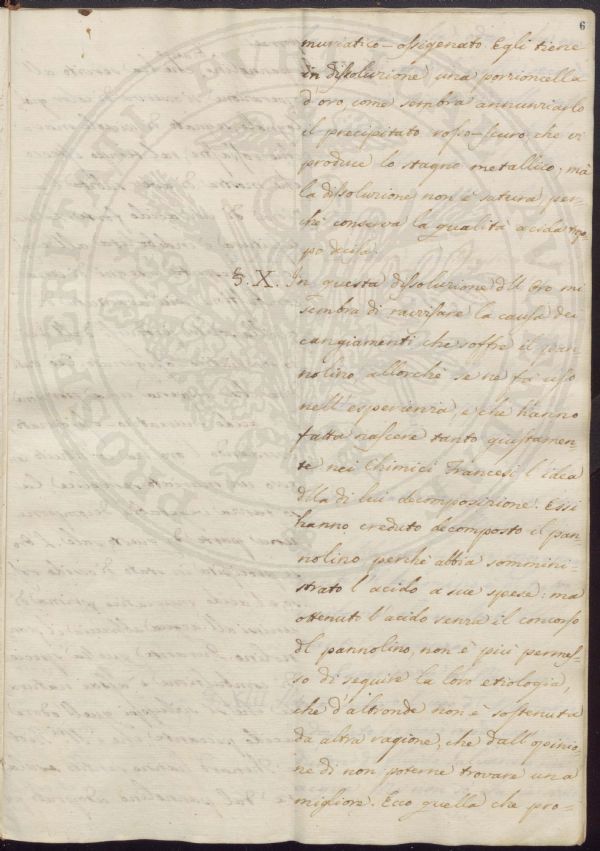 6
muriatico-ossigenato. Egli tiene
in dissoluzione una porzioncella
d'oro, come sembra annunziarlo
il precipitato rosso-scuro, che vi
produce lo stagno metallico; mà
la dissoluzione non è satura per-
chè conserva la qualità acida trop-
po decisa.
§. X. In questa dissoluzione dell'Oro mi
sembra di ravvisare la causa dei
cangiamenti che soffre il pan-
nolino, allorchè se ne fà uso
nell'esperienza, e che hanno
fatta nascere tanto giustamen-
te nei Chimici Francesi l'idea
della di lui decomposizione. Essi
hanno creduto decomposto il pan-
nolino perchè abbia sommini-
strato l'acido a sue spese: ma
ottenuto l'acido senza il concorso
del pannolino, non è più permes-
so di seguire la loro etiologia,
che d'altronde non è sostenuta
da altra ragione, che dall'opinio-
ne di non poterne trovare una
migliore. Ecco quella che pro-
PROSPERI